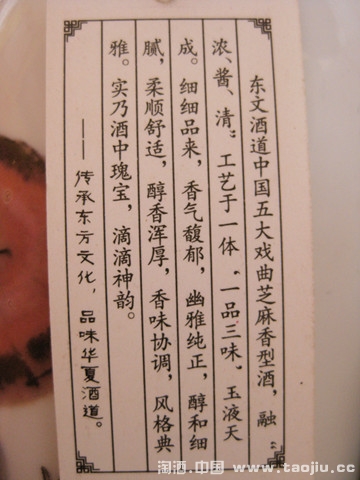 东文酒道中国五大戏曲芝麻香型酒，融“
浓、酱、清”工艺于一体，“一品三味”。玉液天
成。细细品来，香气馥郁，幽雅纯正，醇和细
腻，柔顺舒适，醇香浑厚，香味协调，风格典
雅。实乃酒中瑰宝，滴滴神韵。
——传承东方文化，品味华夏酒道。
淘酒.中国 www.taojiu.cc